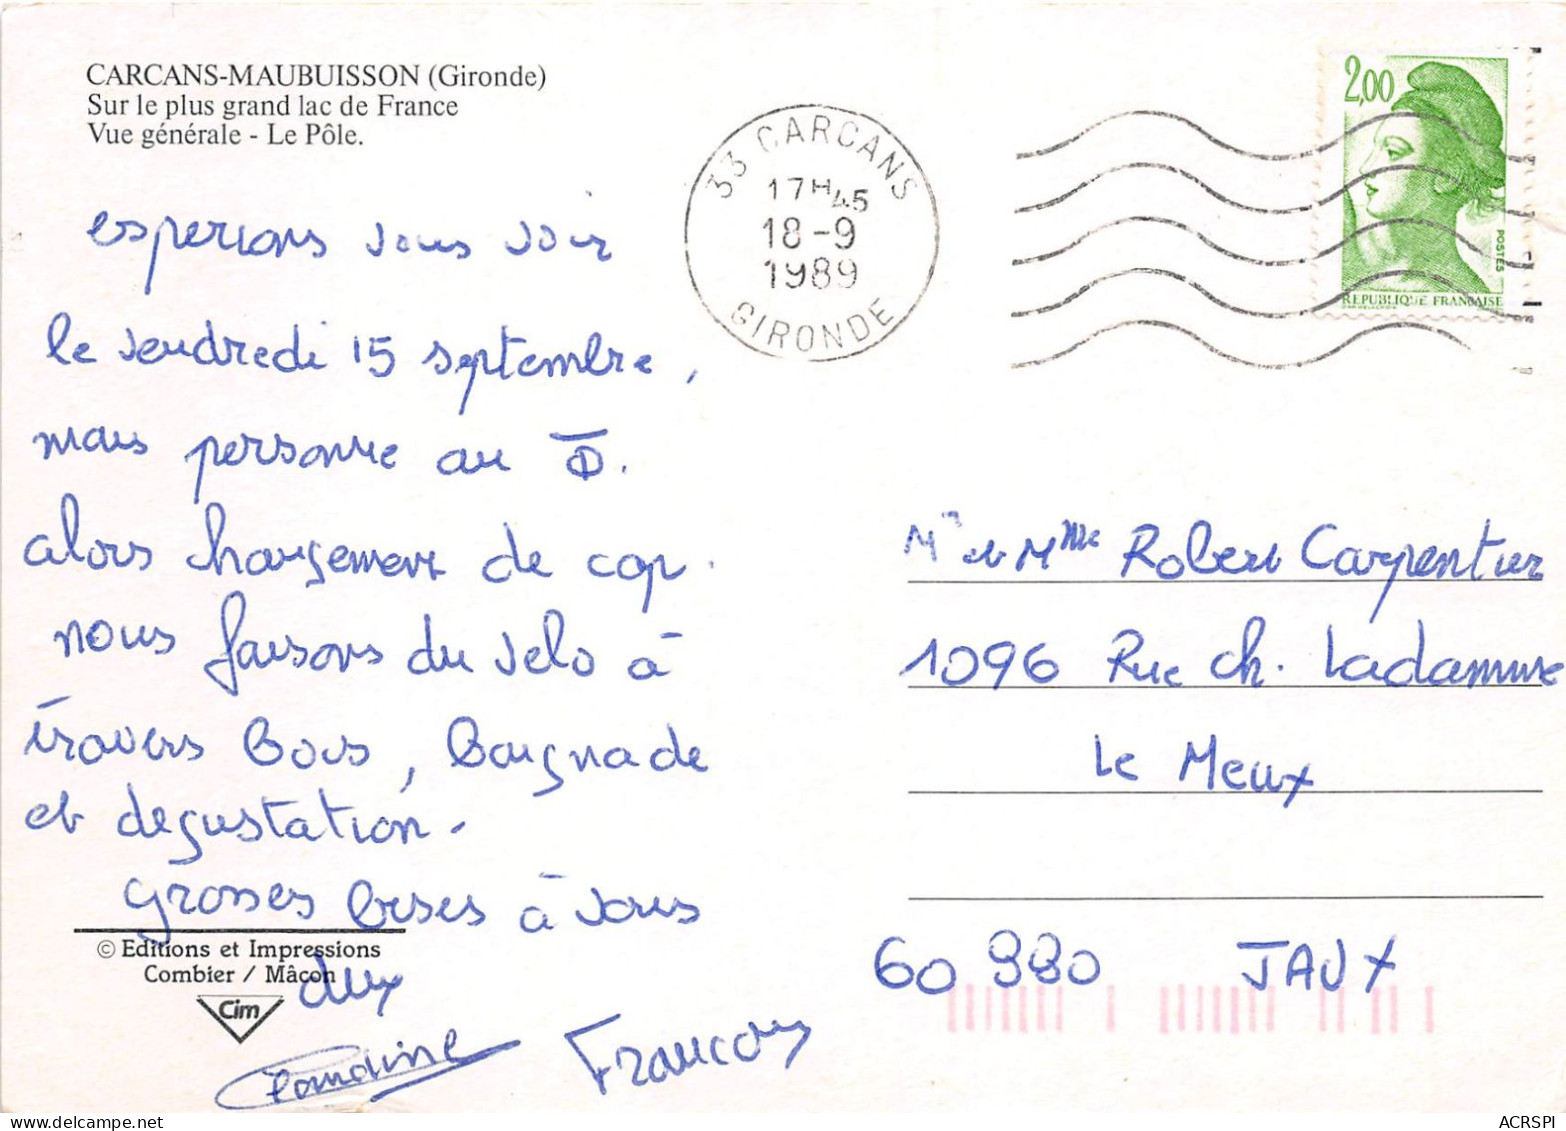 CARCANS-MAUBUISSON (Gironde)
Sur le plus grand lac de France
Vue générale - Le Pôle.
33 CARCANS
17H45
18-9
1989
GIRONDE
2,00
POSTES
REPUBLIQUE FRANÇAISE
esperions vous voir
le vendredi 15 septembre,
mais personne au
alors changement de cap.
nous faisons du velo à
travers bois, baignade
et degustation.
grosses bises à vous
deux
Claudine Francois
Mr et Mme Robert Carpentier
1096 Rue ch. Ladame
Le Meux
60 880 JAUX
© Editions et Impressions
Combier / Mâcon
Cim
ACRSPI